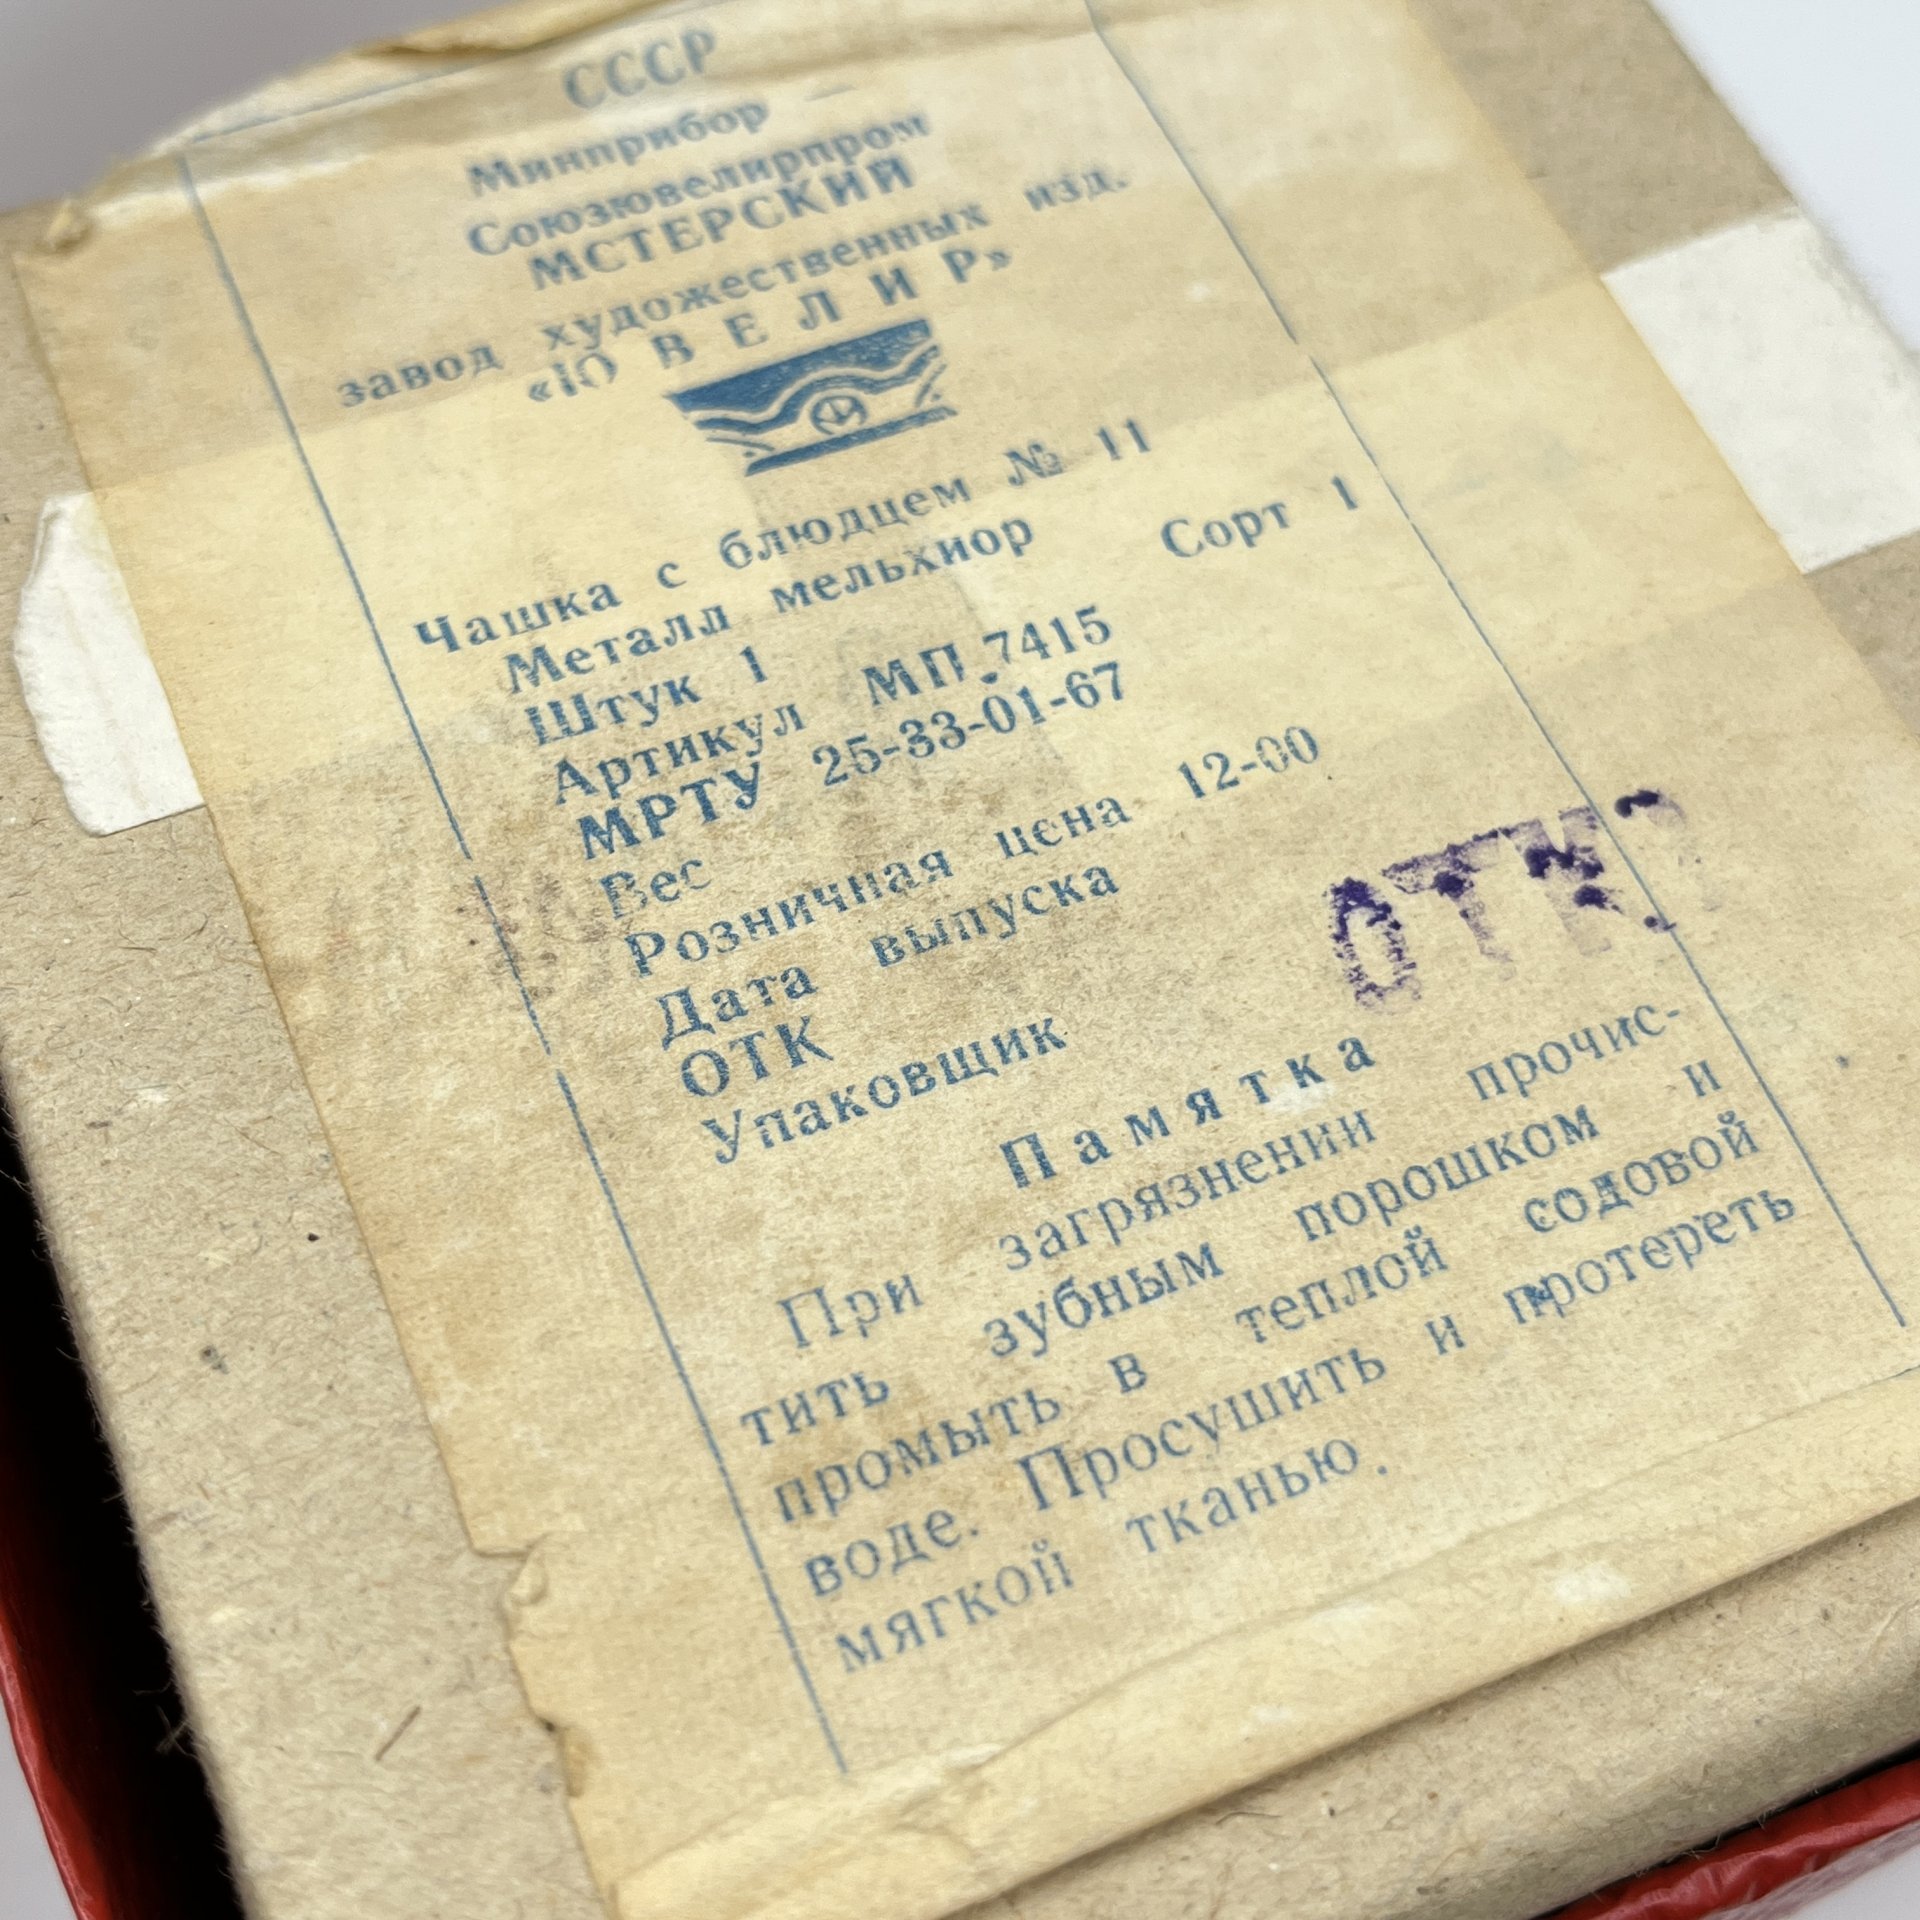 СССР
Минприбор —
Союзювелирпром
МСТЕРСКИЙ
завод художественных изд.
«ЮВЕЛИР»
Чашка с блюдцем № 11
Металл мельхиор Сорт 1
Штук 1
Артикул МП.7415
МРТУ 25-33-01-67
Вес
Розничная цена 12-00
Дата выпуска
ОТК
Упаковщик
ОТК
Памятка
При загрязнении прочис-
тить зубным порошком и
промыть в теплой содовой
воде. Просушить и протереть
мягкой тканью.